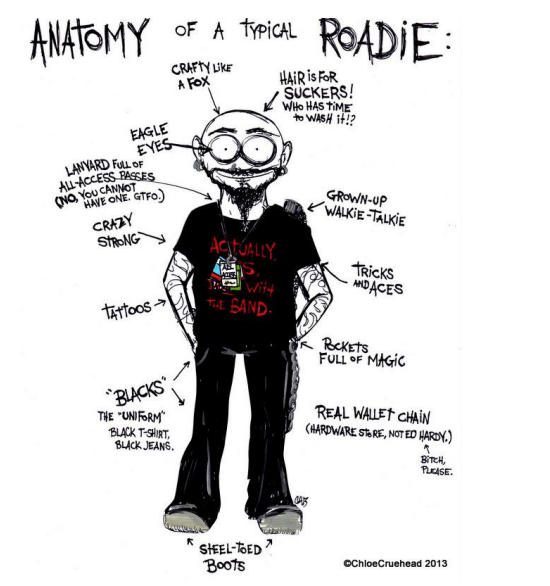 ANATOMY OF A TYPICAL ROADIE:
CRAFTY LIKE
A FOX
HAIR IS FOR
SUCKERS!
WHO HAS TIME
to WASH it!?
EAGLE
EYES
LANYARD FULL OF
ALL-ACCESS PASSES
(NO, YOU CANNOT
HAVE ONE. GTFO.)
GROWN-UP
WALKIE-TALKIE
CRAZY
STRONG
ACTUALLY,
With
THE BAND.
TRICKS
AND ACES
TATTOOS
POCKETS
FULL OF MAGIC
"BLACKS"
THE "UNIFORM"
BLACK T-SHIRT,
BLACK JEANS.
REAL WALLET CHAIN
(HARDWARE STORE, NOT ED HARDY.)
BITCH,
PLEASE.
STEEL-TOED
BOOTS
©ChloeCruehead 2013